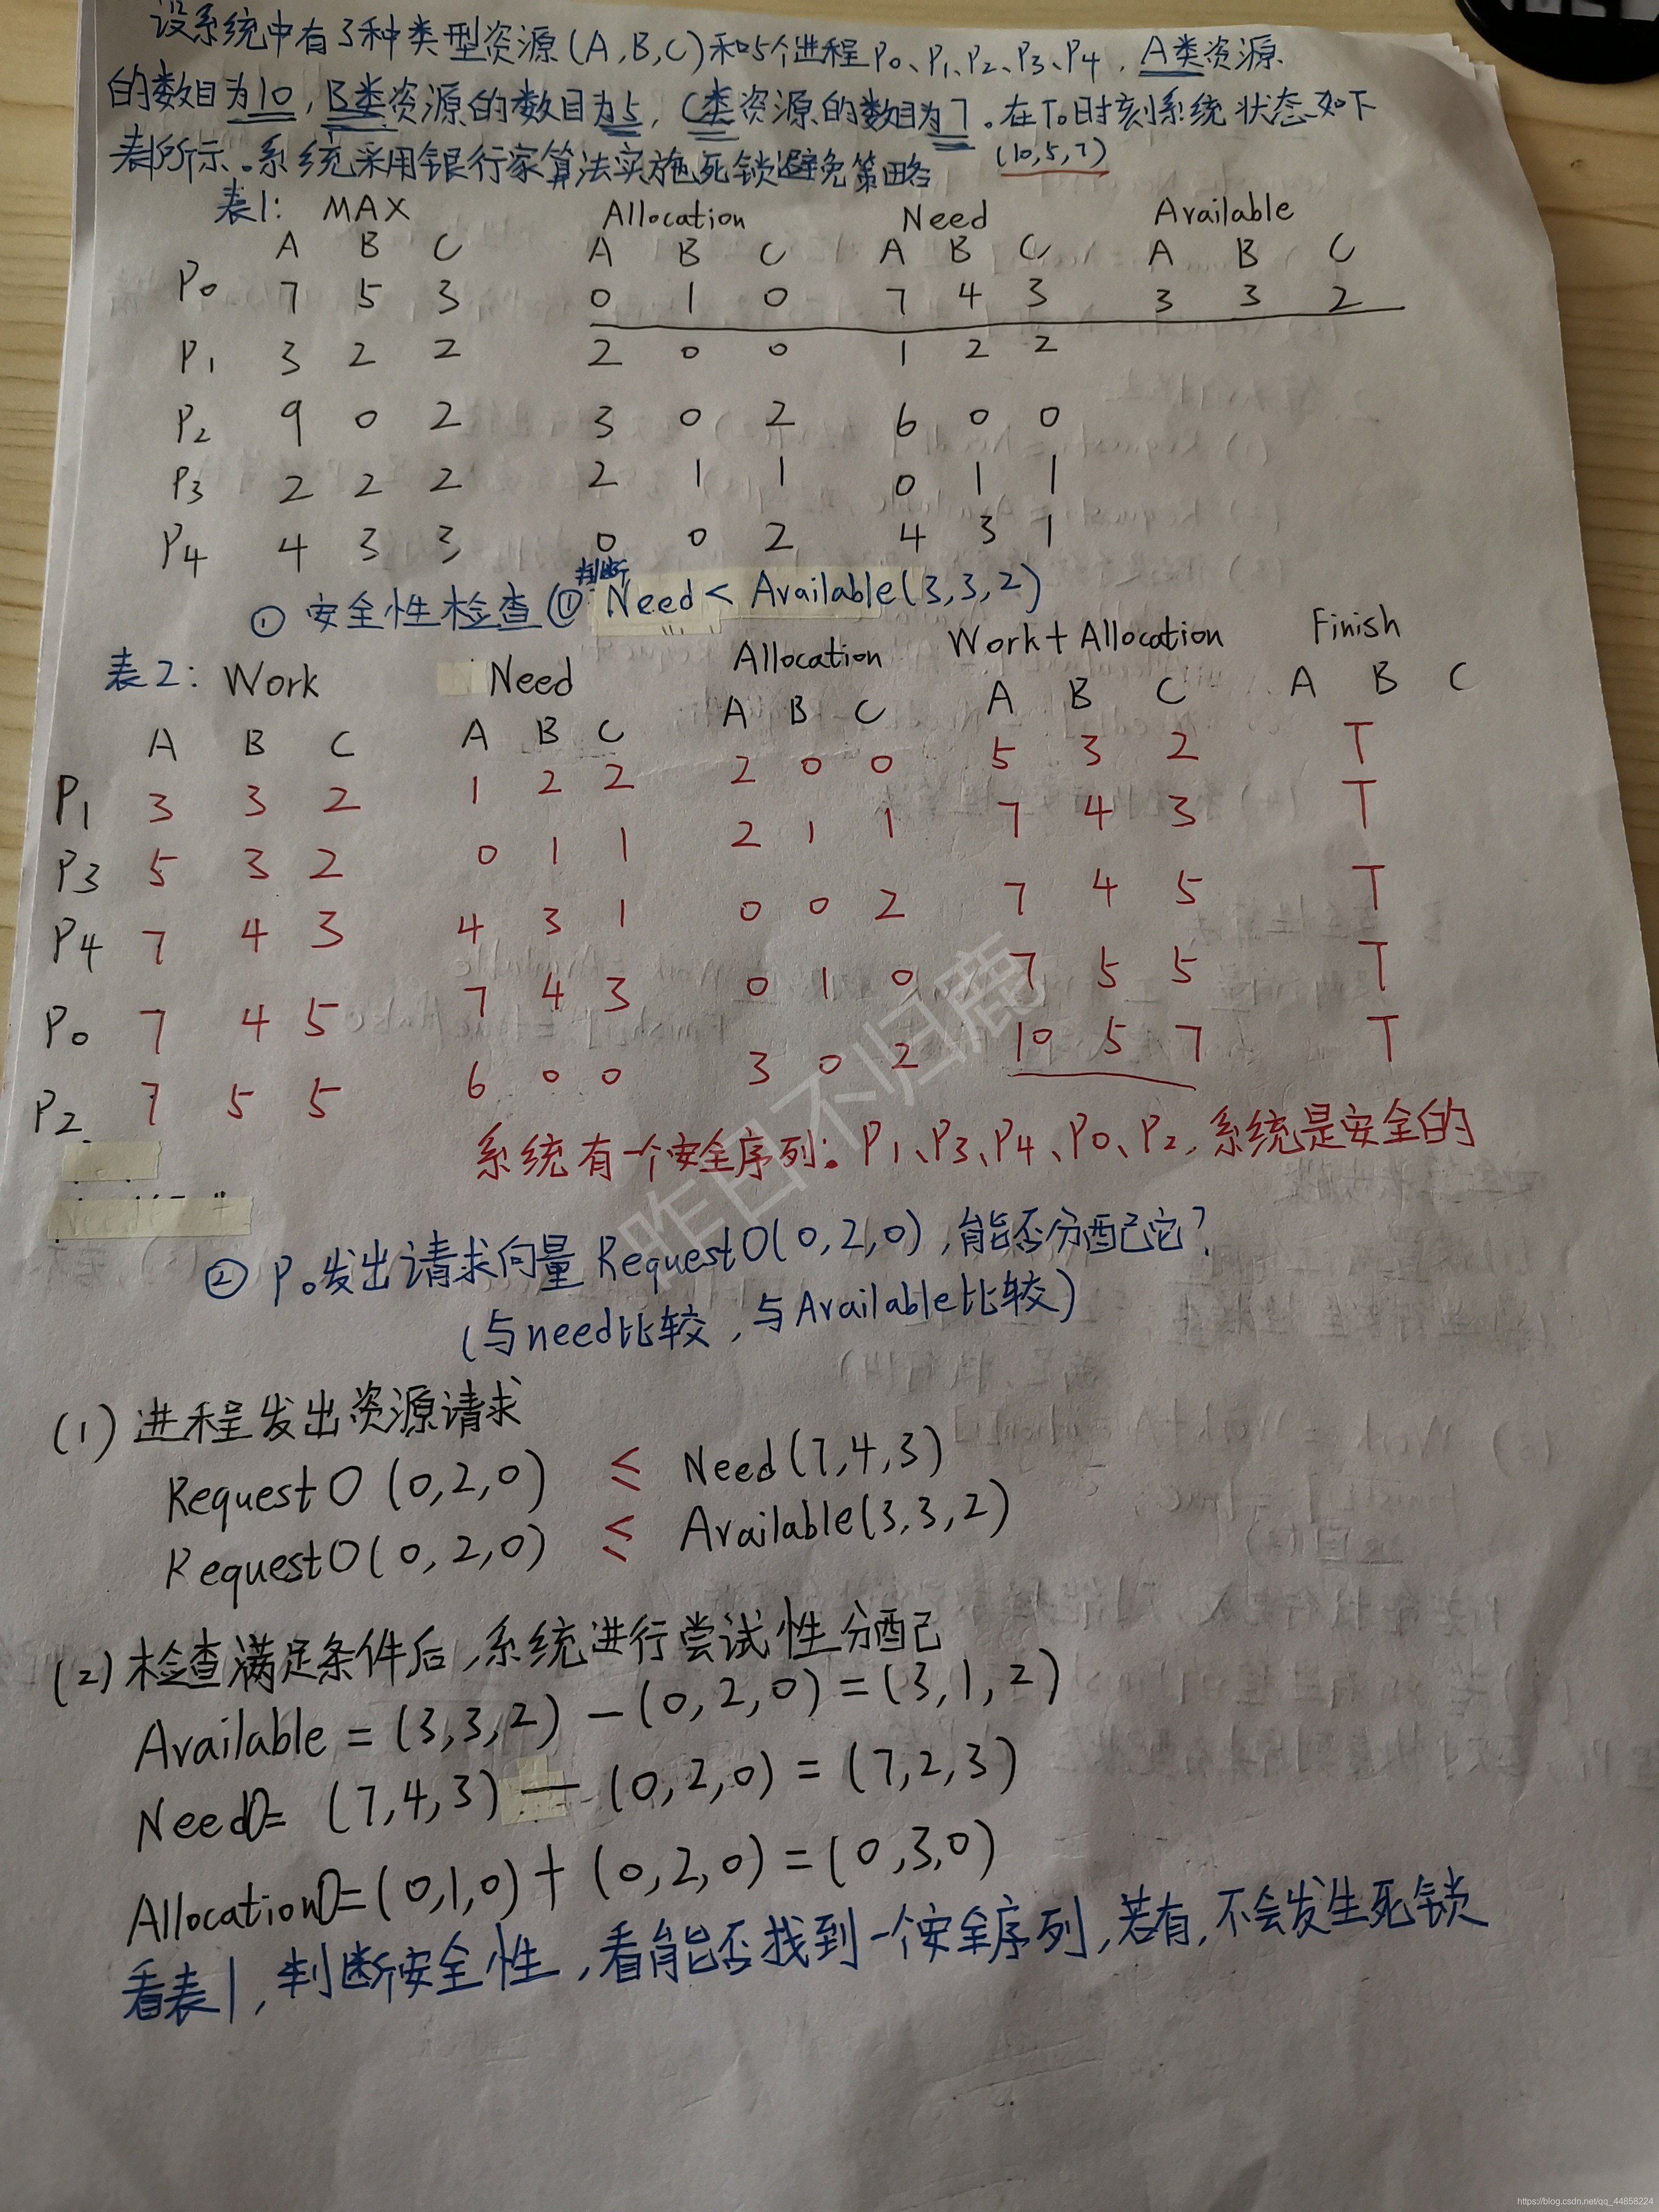 设系统中有3种类型资源(A,B,C)和5个进程P0、P1、P2、P3、P4,A类资源
的数目为10,B类资源的数目为5,C类资源的数目为7。在T0时刻系统状态如下
表所示。系统采用银行家算法实施死锁避免策略 (10,5,7)
表1: MAX Allocation Need Available
A B C A B C A B C A B C
P0 7 5 3 0 1 0 7 4 3 3 3 2
P1 3 2 2 2 0 0 1 2 2
P2 9 0 2 3 0 2 6 0 0
P3 2 2 2 2 1 1 0 1 1
P4 4 3 3 0 0 2 4 3 1
① 安全性检查 ① 判断 Need < Available(3,3,2)
表2: Work Need Allocation Work+Allocation Finish
A B C A B C A B C A B C A B C
P1 3 3 2 1 2 2 2 0 0 5 3 2 T
P3 5 3 2 0 1 1 2 1 1 7 4 3 T
P4 7 4 3 4 3 1 0 0 2 7 4 5 T
P0 7 4 5 7 4 3 0 1 0 7 5 5 T
P2 7 5 5 6 0 0 3 0 2 10 5 7 T
系统有一个安全序列:P1、P3、P4、P0、P2,系统是安全的
昨日不归鹿
② P0发出请求向量Request0(0,2,0),能否分配它?
(与need比较,与Available比较)
(1)进程发出资源请求
Request0 (0,2,0) ≤ Need(7,4,3)
Request0(0,2,0) ≤ Available(3,3,2)
(2)检查满足条件后,系统进行尝试性分配
Available = (3,3,2) - (0,2,0) = (3,1,2)
Need0= (7,4,3) - (0,2,0) = (7,2,3)
Allocation0=(0,1,0)+(0,2,0)=(0,3,0)
看表1,判断安全性,看能否找到一个安全序列,若有,不会发生死锁
https://blog.csdn.net/qq_44858224